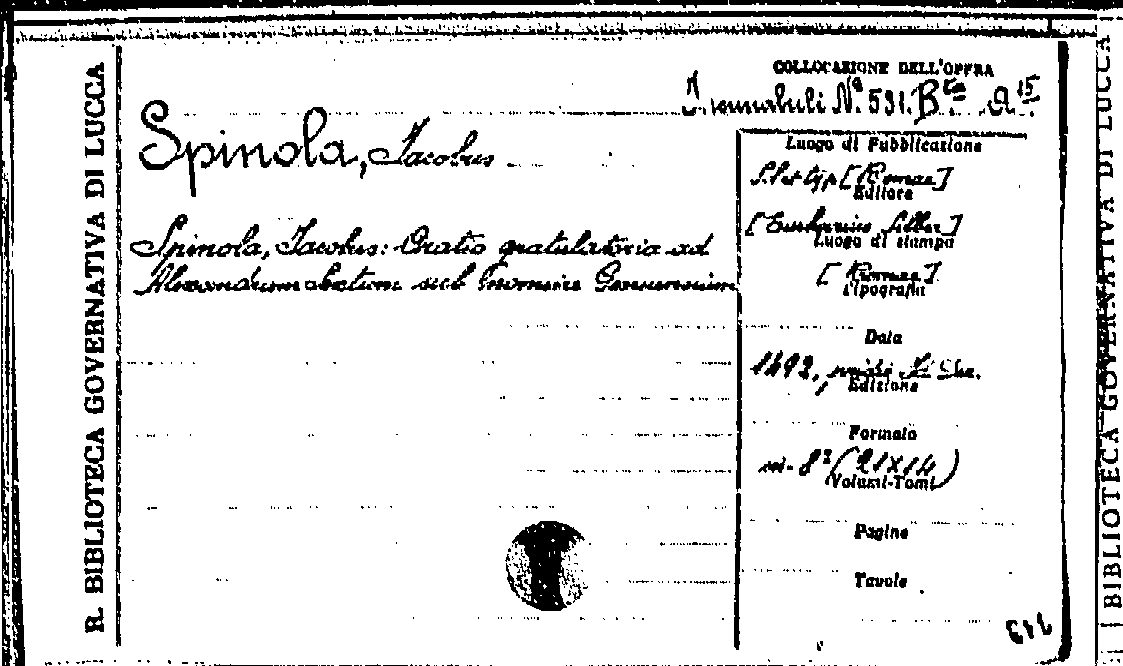 R. BIBLIOTECA GOVERNATIVA DI LUCCA
COLLOCAZIONE DELL'OPERA
Incunabuli Nº 531. Bta a 15
Spinola, Jacobus
Spinola, Jacobus: Oratio gratulatoria ad
Alexandrum nomine Genuensium
Luogo di Pubblicazione
S. l. et typ [Romae]
Editore
[Eucharius Silber]
Luogo di stampa
[Romae]
Tipografia
Data
1492,
Edizione
Formato
in- 8º (21X14)
Volumi-Tomi
Pagine
Tavole
BIBLIOTECA GOVERNATIVA DI LUCCA